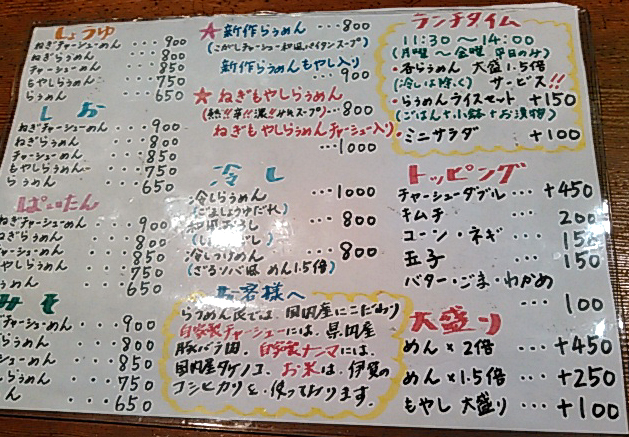 しょうゆ
ねぎチャーシューめん ・・・ 900
ねぎらぅめん ・・・ 800
チャーシューめん ・・・ 850
もやしらぅめん ・・・ 750
らぅめん ・・・ 650
しお
ねぎチャーシューめん ・・・ 900
ねぎらぅめん ・・・ 800
チャーシューめん ・・・ 850
もやしらぅめん ・・・ 750
らぅめん ・・・ 650
ぱいたん
ねぎチャーシューめん ・・・ 900
ねぎらぅめん ・・・ 800
チャーシューめん ・・・ 850
もやしらぅめん ・・・ 750
らぅめん ・・・ 650
みそ
チャーシューめん ・・・ 900
らぅめん ・・・ 800
シューめん ・・・ 850
しらぅめん ・・・ 750
ん ・・・ 650
★ 新作らぅめん ・・・ 800
(こがしチャーシュー和風パイタンスープ)
新作らぅめんもやし入り
・・・ 900
★ ねぎもやしらぅめん
(熱!!辛!!濃!!みそスープ) ・・・ 800
ねぎもやしらぅめんチャーシュー入り
・・・ 1000
冷し
冷しらぅめん ・・・ 1000
(ごましょうゆだれ)
和風おろし ・・・ 800
冷しつけめん ・・・ 800
(ざるソバ風 めん1.5倍)
お客様へ
らぅめん食では、国内産にこだわり
自家製チャーシューには、県内産
豚バラ肉、自家製メンマには、
国内産タケノコ、お米は、伊賀の
コシヒカリを、使っております。
ランチタイム
11:30 〜 14:00
(月曜 〜 金曜 平日のみ)
・各らぅめん 大盛1.5倍
(冷しは除く) サービス!!
・らぅめんライスセット +150
(ごはん+小鉢+お漬物)
・ミニサラダ +100
トッピング
チャーシューダブル ・・・ +450
キムチ ・・・ 200
コーン・ネギ ・・・ 150
玉子 ・・・ 150
バター・ごま・わかめ
・・・ 100
大盛り
めん×2倍 ・・・ +450
めん×1.5倍 ・・・ +250
もやし 大盛り ・・・ +100